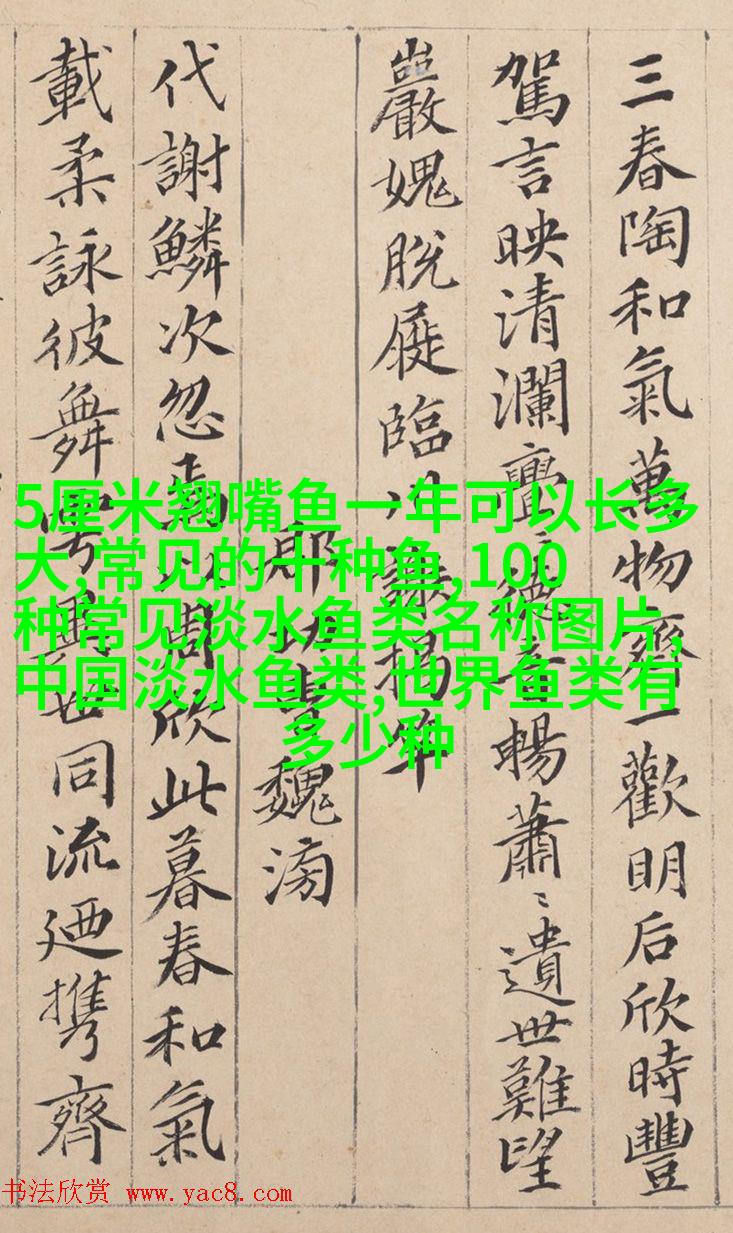 三春陶和氣萬物齊一歡明后欣時豐
駕言映清瀾亹〻德音暢蕭〻遺世難望
巖愧脫屣臨川謝揭竿
郡功曹魏滂
代謝鱗次忽焉以周欣此暮春和氣
載柔詠彼舞雩異世同流迺攜齊
5厘米翘嘴鱼一年可以长多
大,常见的十种鱼,100
种常见淡水鱼类名称图片,
中国淡水鱼类,世界鱼类有
多少种
书法欣赏 www.yac8.com